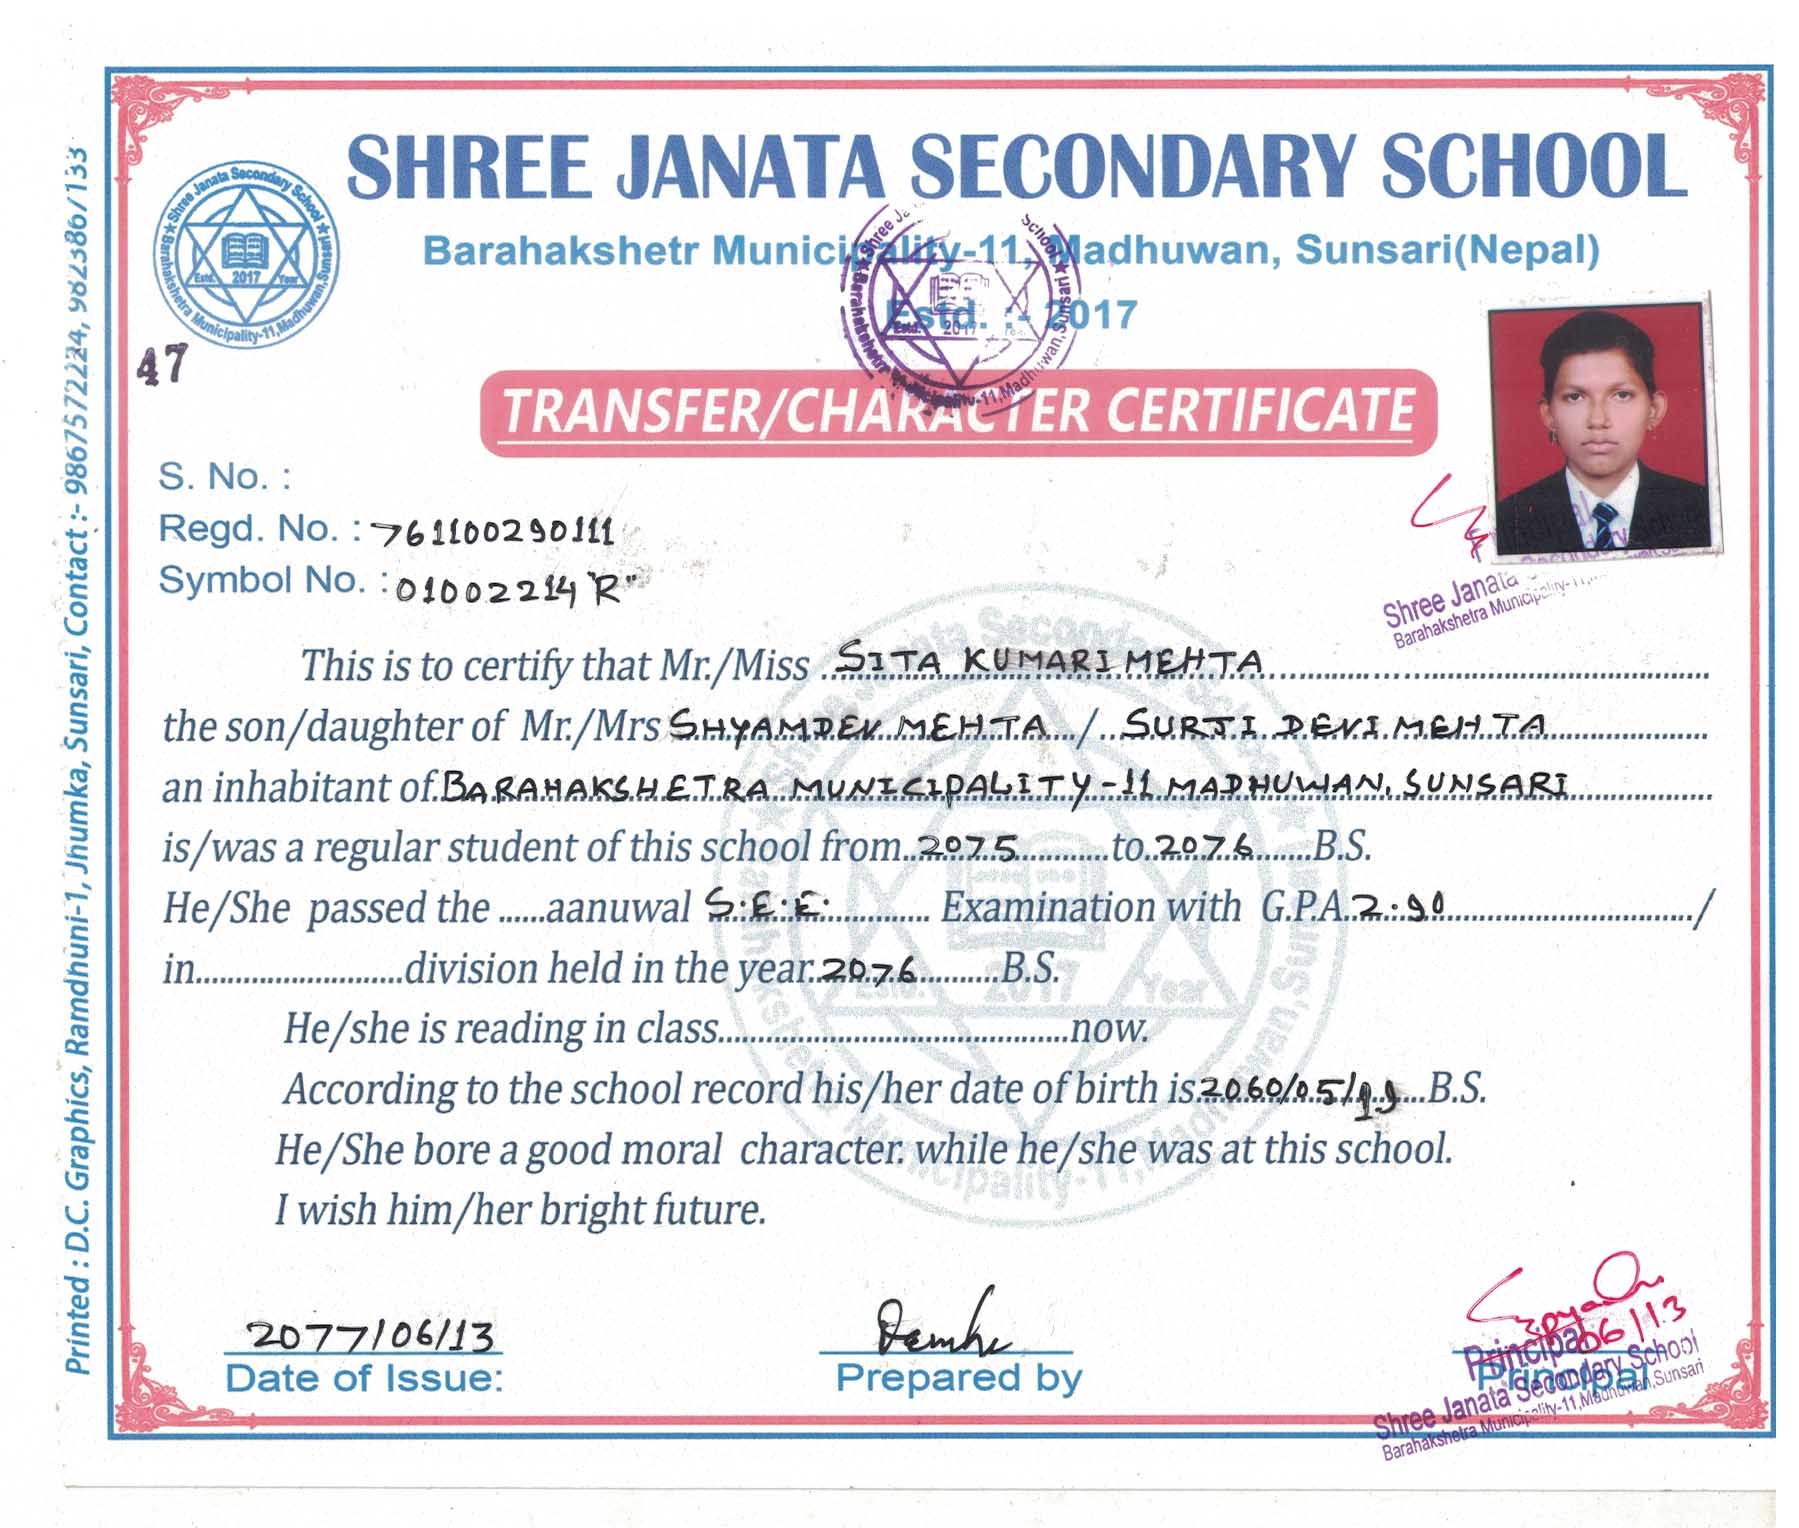 SHREE JANATA SECONDARY SCHOOL
Barahakshetr Municipality-11, Madhuwan, Sunsari(Nepal)
Estd. :- 2017
Shree Janata Secondary School
Barahakshetra Municipality-11, Madhuwan, Sunsari
Estd. 2017 Year
47
TRANSFER/CHARACTER CERTIFICATE
S. No. :
Regd. No. : 761100290111
Symbol No. : 01002214 "R"
Shree Janata
Barahakshetra Municipality-11,
This is to certify that Mr./Miss SITA KUMARI MEHTA
the son/daughter of Mr./Mrs SHYAMDEV MEHTA / SURJI DEVI MEHTA
an inhabitant of BARAHAKSHETRA MUNICIPALITY-11 MADHUWAN, SUNSARI
is/was a regular student of this school from 2075 to 2076 B.S.
He/She passed the ......aanuwal S.E.E. Examination with G.P.A. 2.90 /
in........................division held in the year 2076 B.S.
He/she is reading in class........................................now.
According to the school record his/her date of birth is 2060/05/19 B.S.
He/She bore a good moral character. while he/she was at this school.
I wish him/her bright future.
2077/06/13
Date of Issue:
Prepared by
06/13
Principal
Principal
Shree Janata Secondary School
Barahakshetra Municipality-11, Madhuwan, Sunsari
Printed : D.C. Graphics, Ramdhuni-1, Jhumka, Sunsari, Contact :- 9867572224, 982386/133